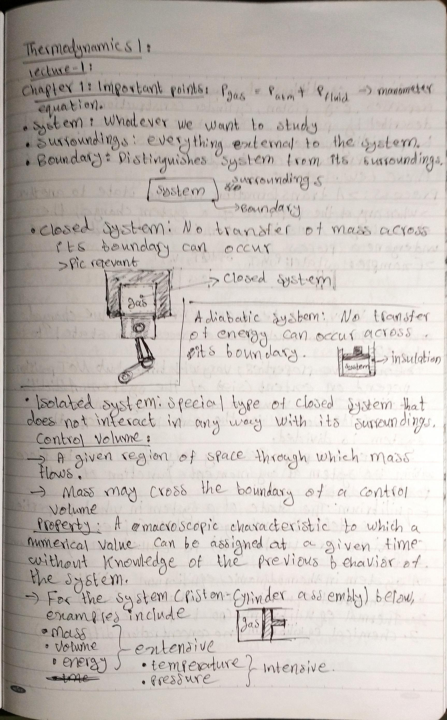 Thermodynamics 1:
Lecture-1:
Chapter 1: Important points: Pgas = Patm + Pfluid → manometer
equation.
• System: Whatever we want to study
• Surroundings: everything external to the system.
• Boundary: Distinguishes system from its surroundings.
System
surroundings
→ Boundary
• Closed System: No transfer of mass across
its boundary can occur
> Pic relevant
gas
→ Closed system
Adiabatic system: No transfer
of energy can occur across
its boundary.
system
→ insulation
• Isolated system: special type of closed system that
does not interact in any way with its surroundings.
Control Volume:
→ A given region of space through which mass
flows.
→ Mass may cross the boundary of a control
volume
Property: A macroscopic characteristic to which a
numerical value can be assigned at a given time
without knowledge of the previous behavior of
the system.
→ For the system (Piston-Cylinder assembly) below,
examples include
gas
• Mass
• Volume
• energy
extensive
• temperature
• pressure
intensive.